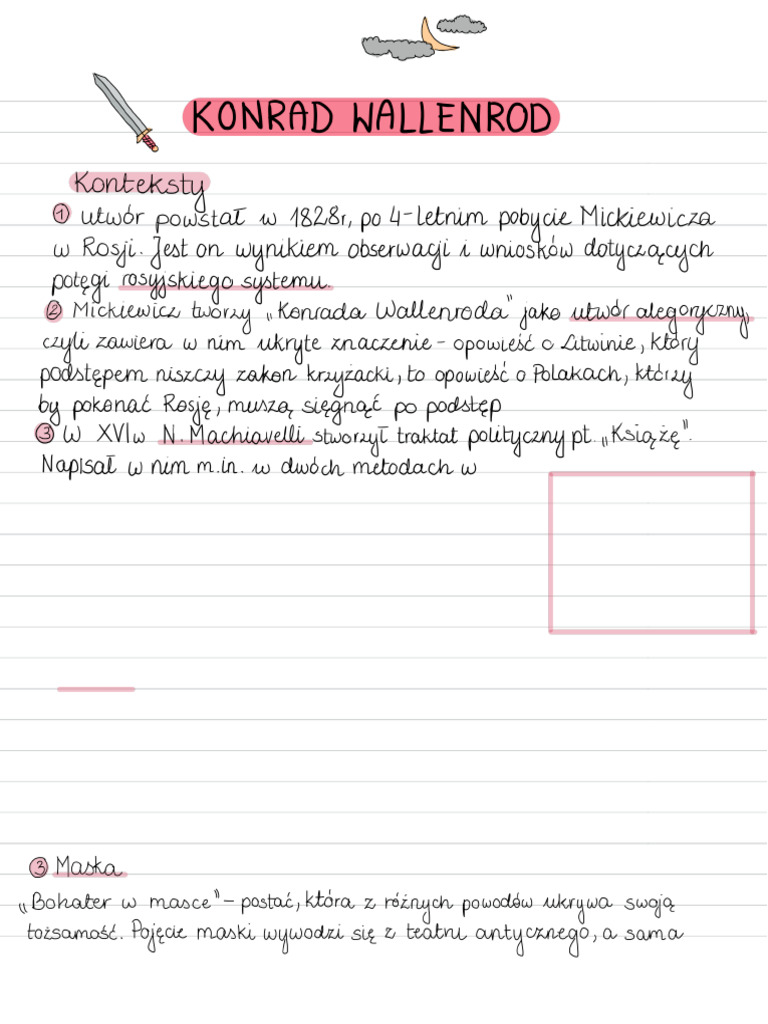 KONRAD WALLENROD
Konteksty
① utwór powstał w 1828r, po 4-letnim pobycie Mickiewicza
w Rosji. Jest on wynikiem obserwacji i wniosków dotyczących
potęgi rosyjskiego systemu.
② Mickiewicz tworzy „Konrada Wallenroda" jako utwór alegoryczny,
czyli zawiera w nim ukryte znaczenie - opowieść o Litwinie, który
podstępem niszczy zakon krzyżacki, to opowieść o Polakach, którzy
by pokonać Rosję, muszą sięgnąć po podstęp
③ W XVIw N. Machiavelli stworzył traktat polityczny pt. „Książę".
Napisał w nim m.in. w dwóch metodach w
③ Maska
„Bohater w masce" - postać, która z różnych powodów ukrywa swoją
tożsamość. Pojęcie maski wywodzi się z teatru antycznego, a sama